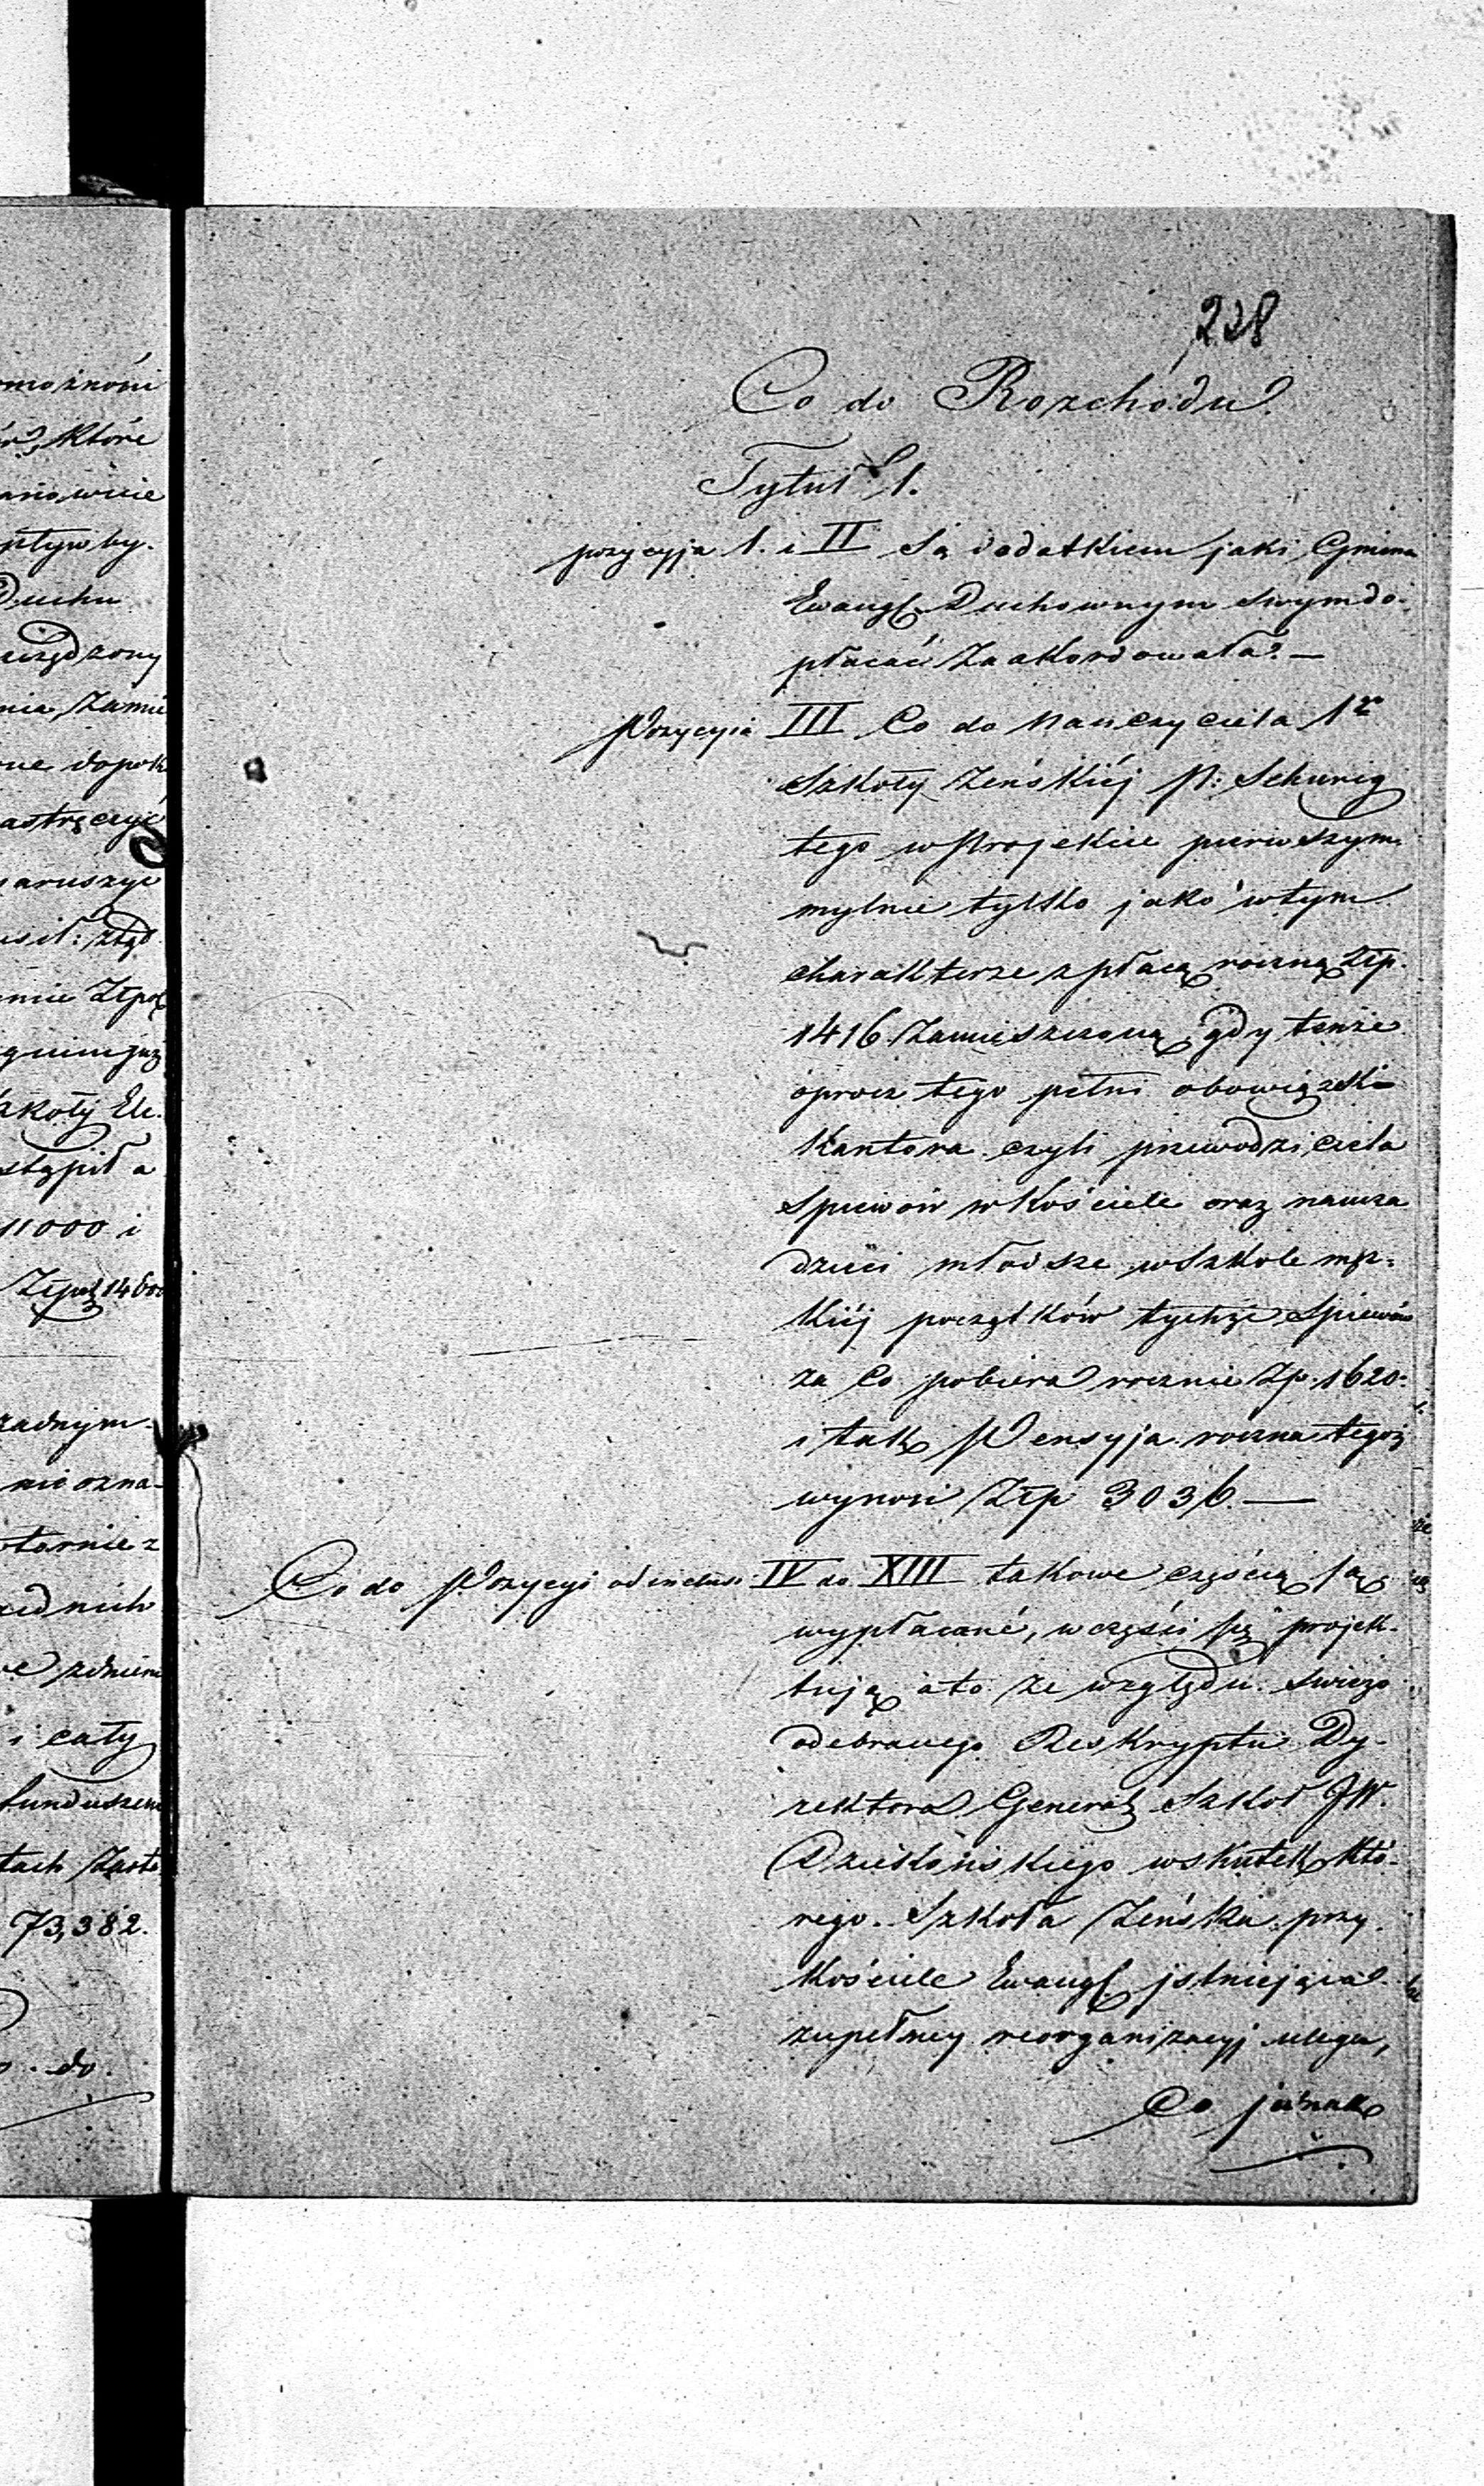 228
Co do Rozchodu.
Tytuł 1.
pozycyja 1. i II Są dodatkiem jaki Gmina
Ewangl. Duchownym swym do-
płacać zaakordowała. —
Pozycyia III Co do Nauczyciela 1r
Szkoły Żeńskiéj P: Schurig
tego w Projekcie pierwszym
mylnie tylko jako w tym
charakterze z płacą roczną Złp.
1416 zamieszczono, gdy tenże
oprocz tego pełni obowiązki
Kantora czyli przewodziciela
Spiewów w Kościele oraz naucza
dzieci młodsze w Szkole mę-
kiéj początków tychże Spiewów
za Co pobiera rocznie Zp. 1620.
i tak Pensyja roczna tegoż
wynosi Złp 3036 —
Co do Pozycyi od inclus. IV do XIII takowe częścią są
wypłacane, w części się projek-
tują a to ze względu świeżo
odebranego Reskryptu Dy-
rektora General. Szkół JW.
Dziekońskiego wskutek któ-
rego Szkoła Żeńska przy
Kościele Ewangl. jstniejąca
zupełney reorganizacyj ulega,
Co jednak
możności
które
anowicie
wpływ by-
Duchu
nia zamie
astręczyć
naruszyć
11000 i
żadnym
nie ozna-
i cały
funduszem
73,382.
do.